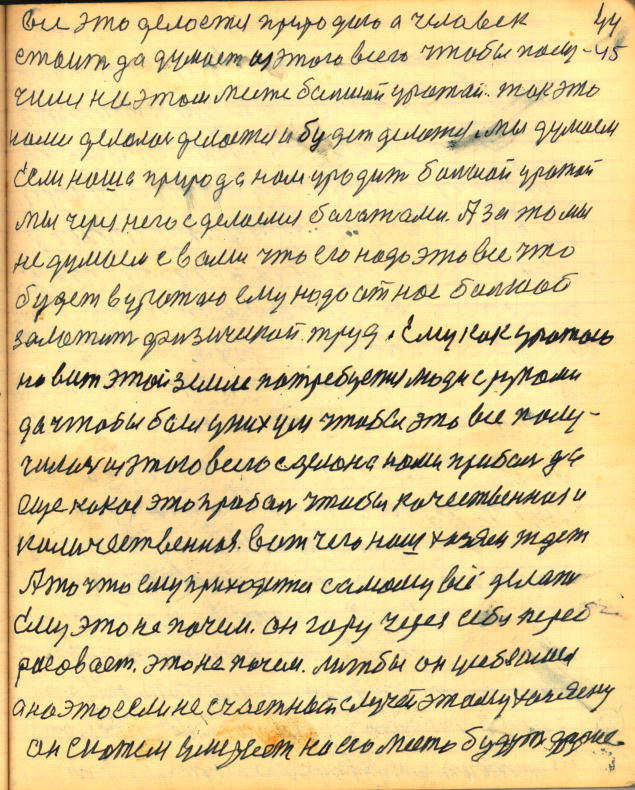 все это делается природаю а человек 44
стоит да думает из этого всего чтобы полу- 45
чили на этом месте балшой уражай. так это
нами делалас делается и будет делатся. мы думаем
Если наша природа нам уродит балшой уражай
мы через него сделаемся багатами. А за то мы
не думаем с вами что его надо это все что
будет в уражаю ему надо от нас балшой
заложит физический труд. Ему как уражаю
на вит этой земле патребуется люди с руками
да чтобы были у них ум чтобы это все полу-
чилас из этого всего сделана нами прибыл да
еще какая это прибыл чтобы качественная и
количественная. вот чего наш хазяен ждет
А то что ему приходется самому всё делат
Ему это не почем. он гору через себя переб-
расовает. это не почем. лишбы он
а на это если не счастный случей этому хазяену
он скажем умерает на его место будут другие